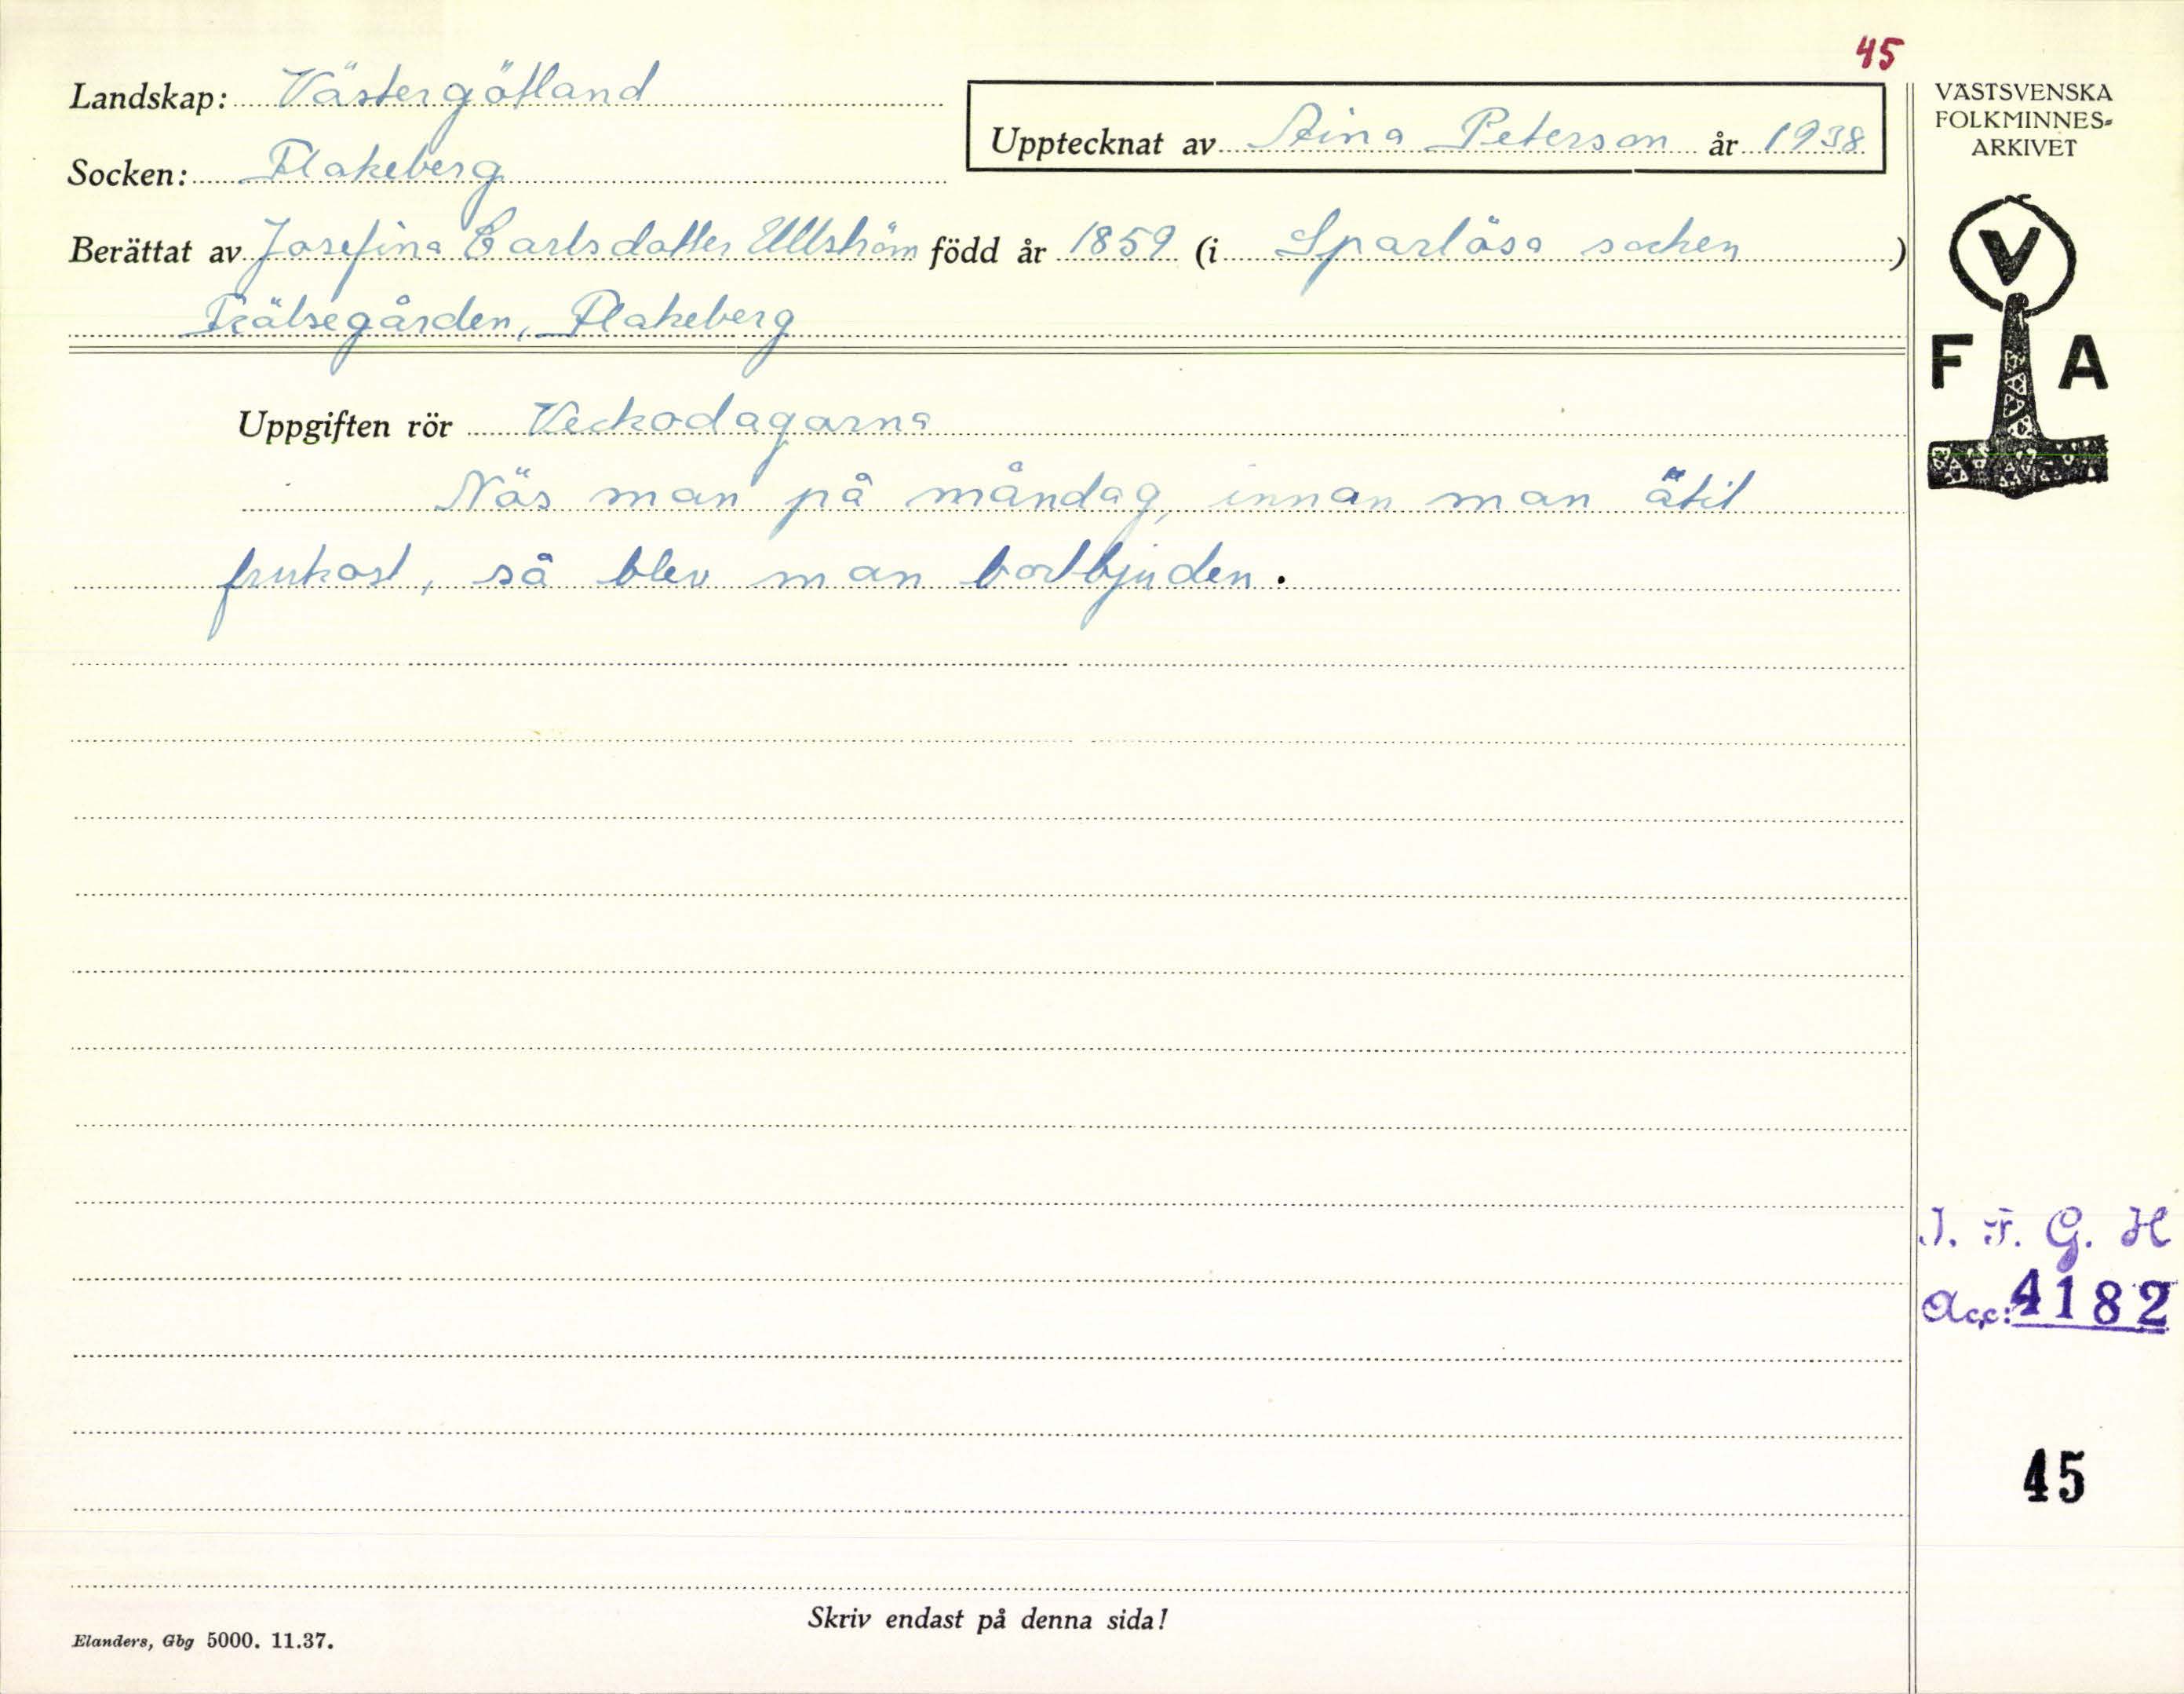 45
Landskap: Västergötland
Upptecknat av Aina Peterson år 1938
Socken: Flakeberg
Berättat av Josefina Carlsdotter Ullström född år 1859 (i Sparlösa socken)
Frälsegården, Flakeberg
Uppgiften rör Veckodagarna
Nös man på måndag, innan man ätit
frukost, så blev man bortbjuden.
Skriv endast på denna sida!
Elanders, Gbg 5000. 11.37.
VÄSTSVENSKA
FOLKMINNES-
ARKIVET
V
F A
I. F. G. H
Acc: 4182
45